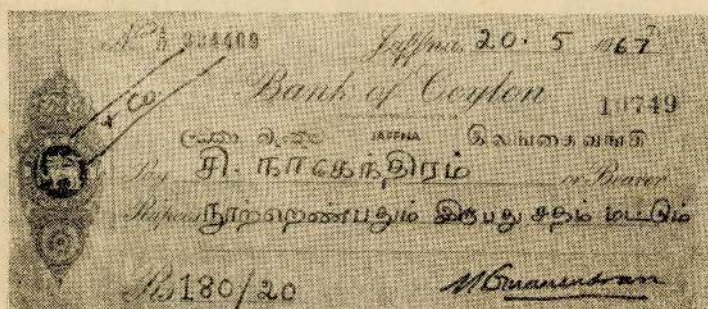 No A/5 334409 Jaffna, 20. 5 1967
& Co.
Bank of Ceylon 10749
ලංකා බැංකුව JAFFNA இலங்கை வங்கி
Pay சி. நாகேந்திரம் or Bearer
Rupees நூற்றெண்பதும் இருபது சதம் மட்டும்
Rs 180/20